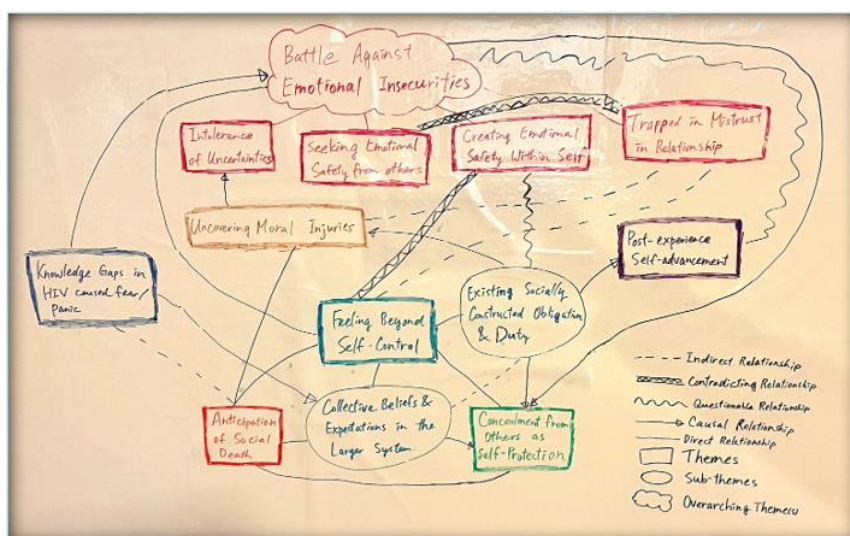 Battle Against
Emotional Insecurities
Intolerance
of Uncertainties
Seeking Emotional
Safety from others
Creating Emotional
Safety Within Self
Trapped in Mistrust
in Relationship
Uncovering Moral Injuries
Post-experience
Self-advancement
Knowledge Gaps in
HIV caused fear/
Panic
Existing Socially
Constructed Obligation
& Duty
Feeling Beyond
Self-Control
Anticipation
of Social
Death
Collective Beliefs &
Expectations in the
Larger System
Concealment from
Others as
Self-Protection
Indirect Relationship
Contradicting Relationship
Questionable Relationship
Causal Relationship
Direct Relationship
Themes
Sub-themes
Overarching